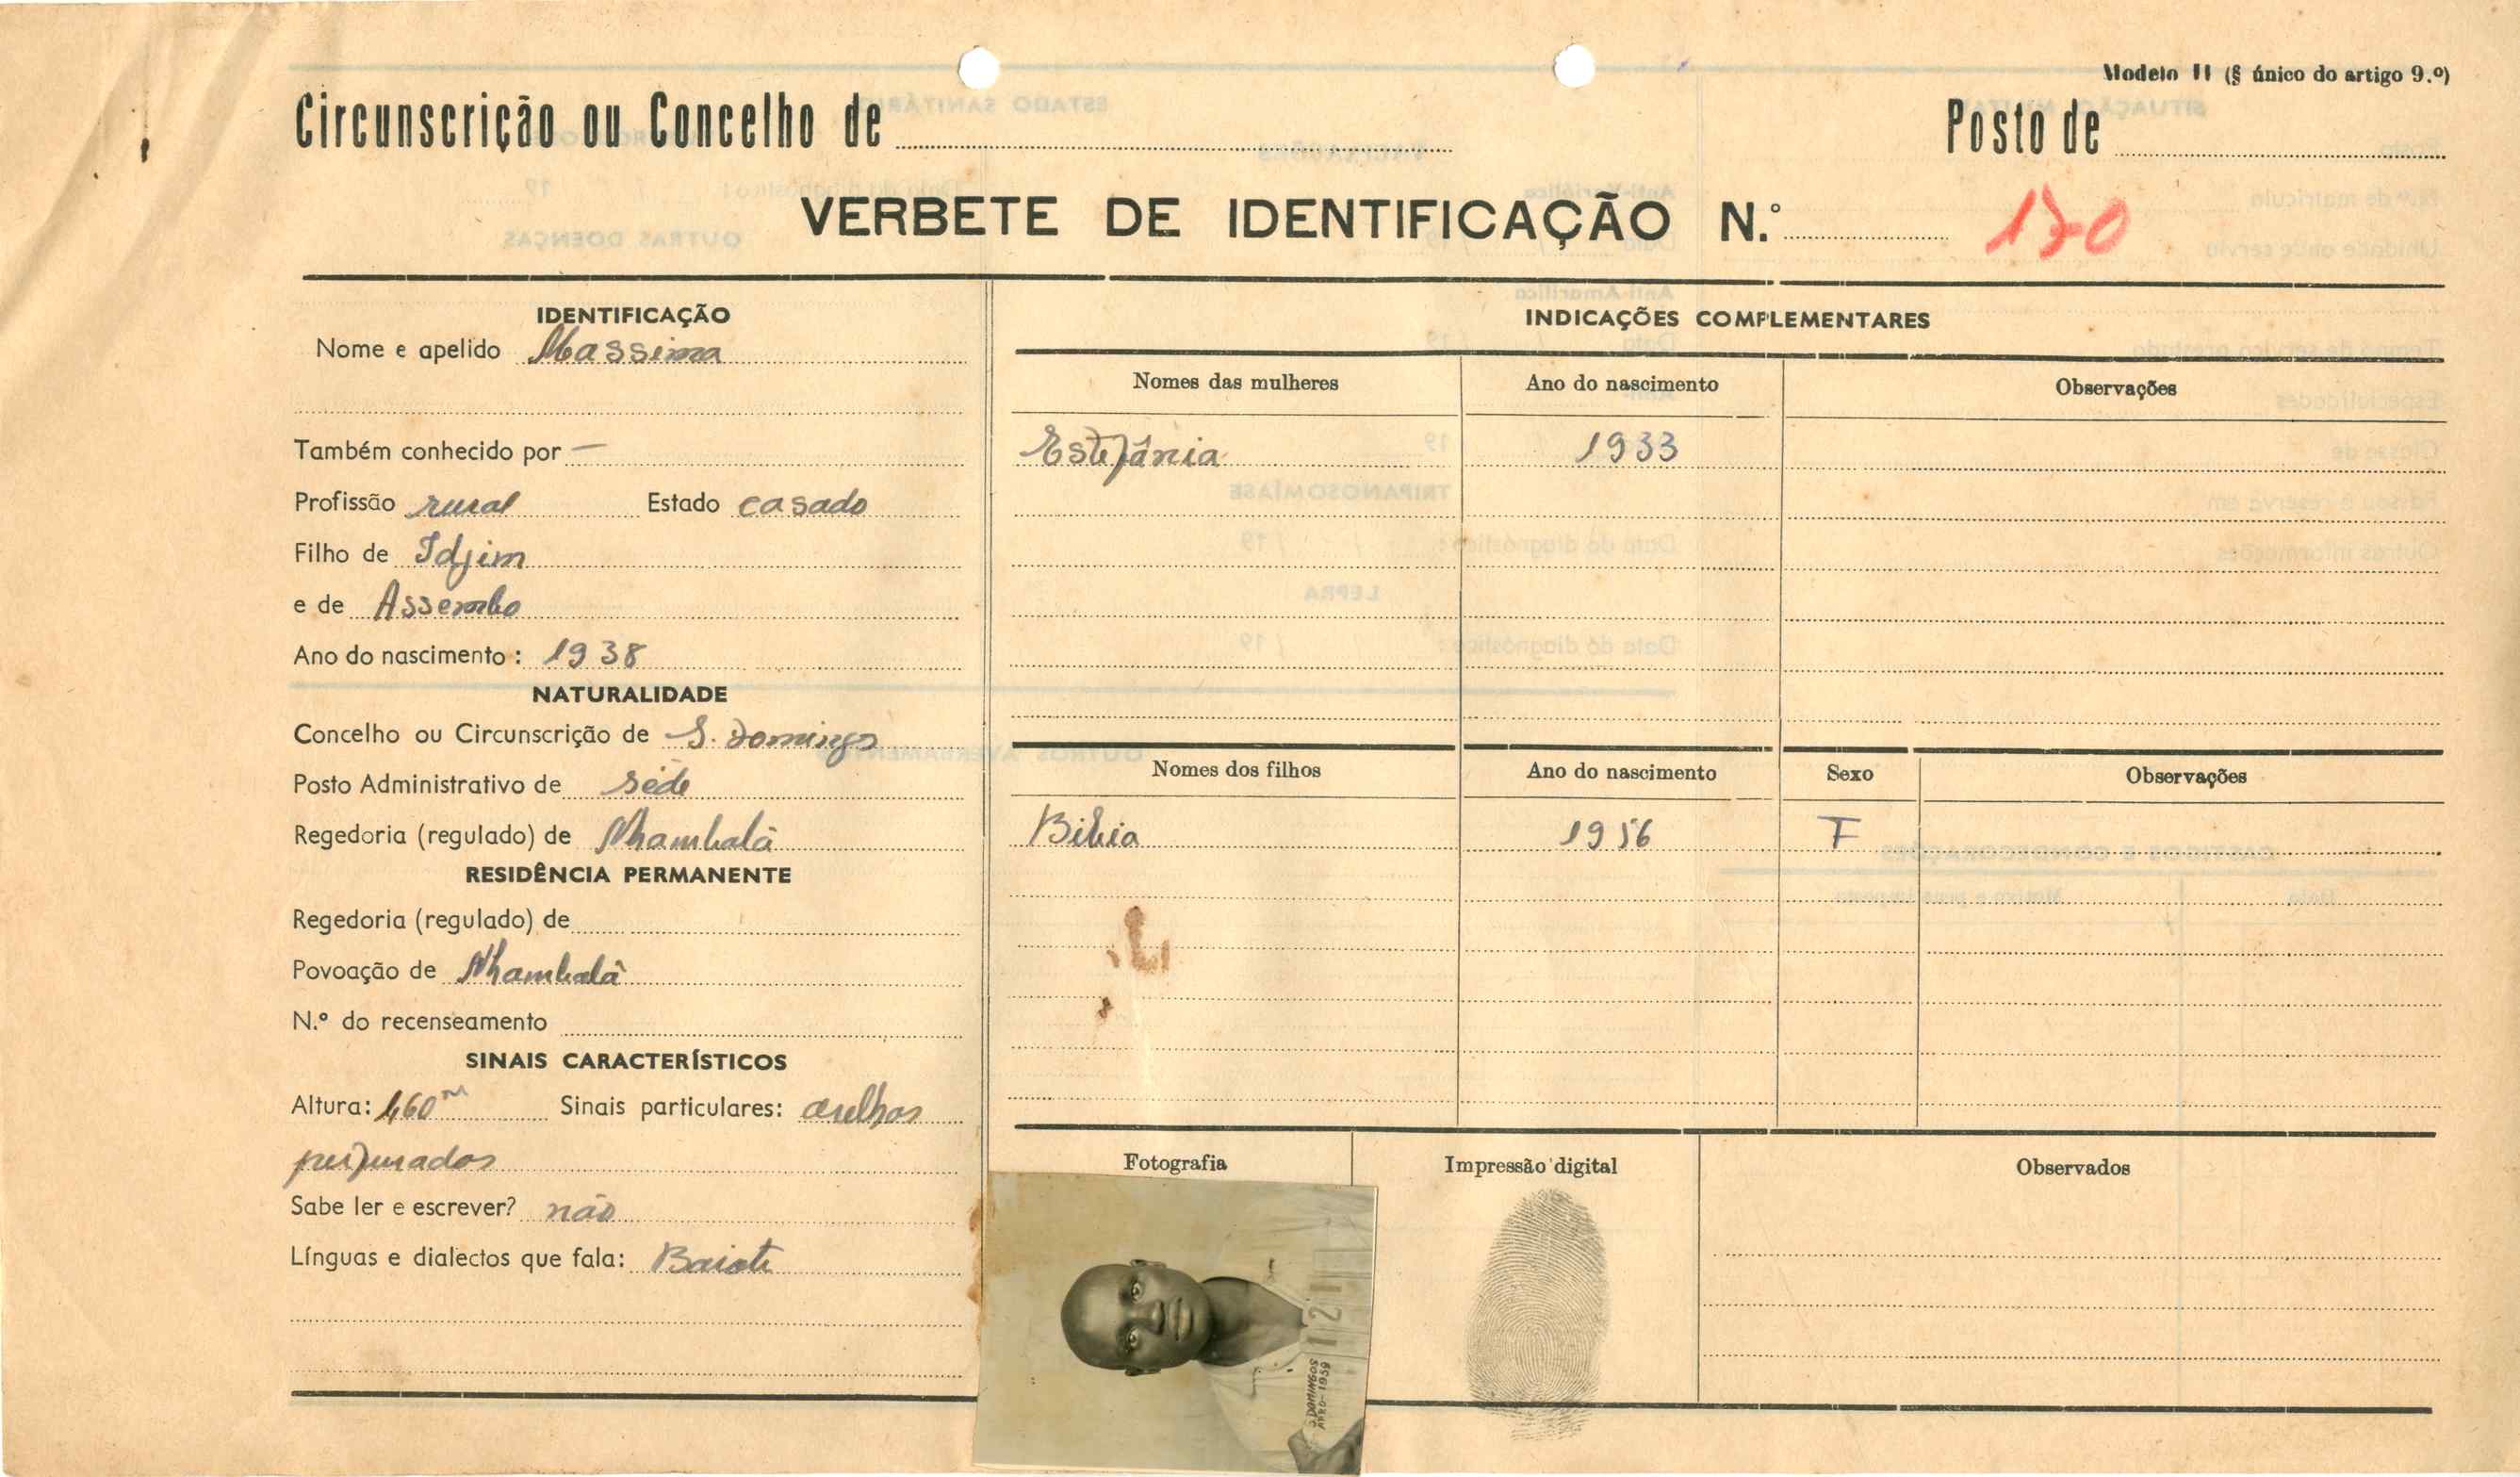 Modelo II (§ único do artigo 9.º)
Circunscrição ou Concelho de
Posto de
VERBETE DE IDENTIFICAÇÃO N.º 170
IDENTIFICAÇÃO
Nome e apelido Massima
Também conhecido por —
Profissão rural Estado casado
Filho de Idjim
e de Assembo
Ano do nascimento: 1938
NATURALIDADE
Concelho ou Circunscrição de S. Domingos
Posto Administrativo de séde
Regedoria (regulado) de Nhambalã
RESIDÊNCIA PERMANENTE
Regedoria (regulado) de
Povoação de Nhambalã
N.º do recenseamento
SINAIS CARACTERÍSTICOS
Altura: 1,60m Sinais particulares: orelhas
perfurados
Sabe ler e escrever? não
Línguas e dialectos que fala: Baiote
INDICAÇÕES COMPLEMENTARES
Nomes das mulheres Ano do nascimento Observações
Estefânia 1933
Nomes dos filhos Ano do nascimento Sexo Observações
Bibia 1956 F
Fotografia Impressão digital Observados
121
S. DOMINGOS
1959